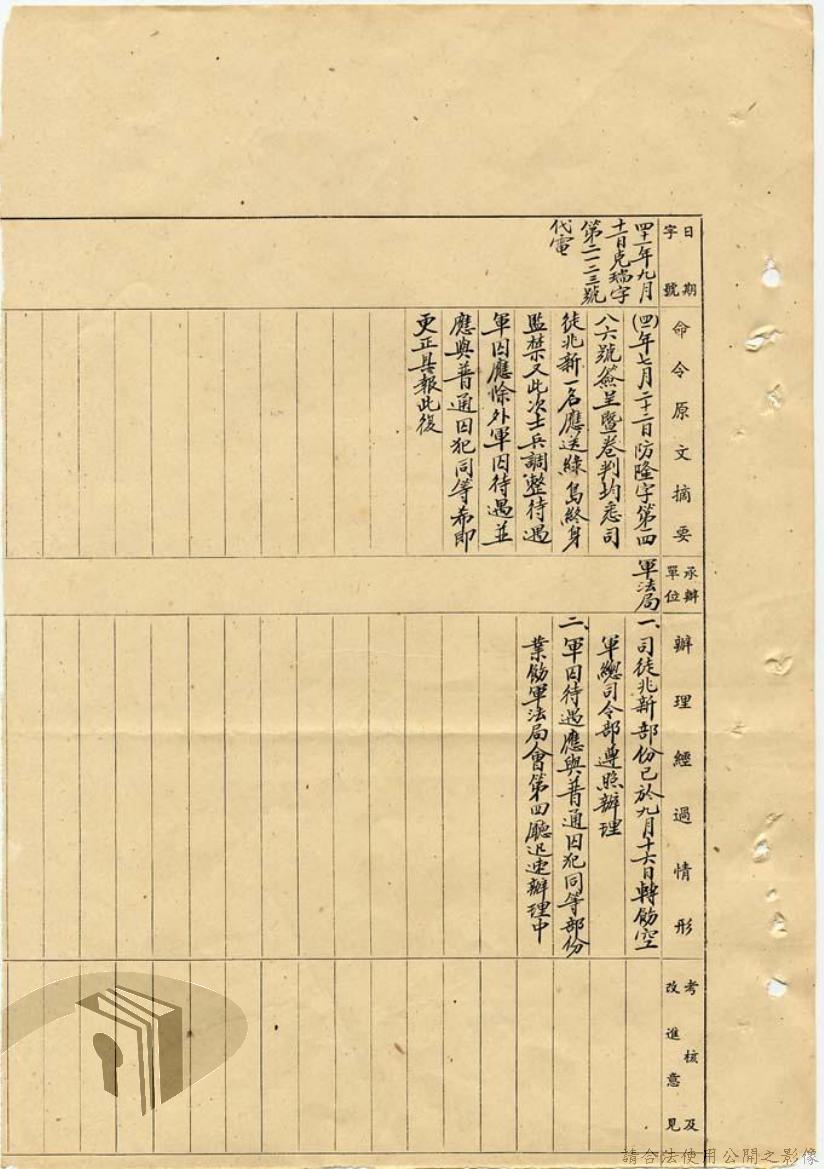 日期
字號
四十一年九月
十一日克瑞字
第二一二三號
代電
命令原文摘要
(四)年七月二十二日防隆字第四
八六號簽呈暨卷判均悉司
徒兆新一名應送綠島終身
監禁又此次士兵調整待遇
軍囚應除外軍囚待遇並
應與普通囚犯同等希即
更正具報此復
承辦
單位
軍法局
辦理經過情形
一、司徒兆新部份已於九月十六日轉飭空
軍總司令部遵照辦理
二、軍囚待遇應與普通囚犯同等部份
業飭軍法局會第四廳迅速辦理中
考核及
改進意見
請合法使用公開之影像